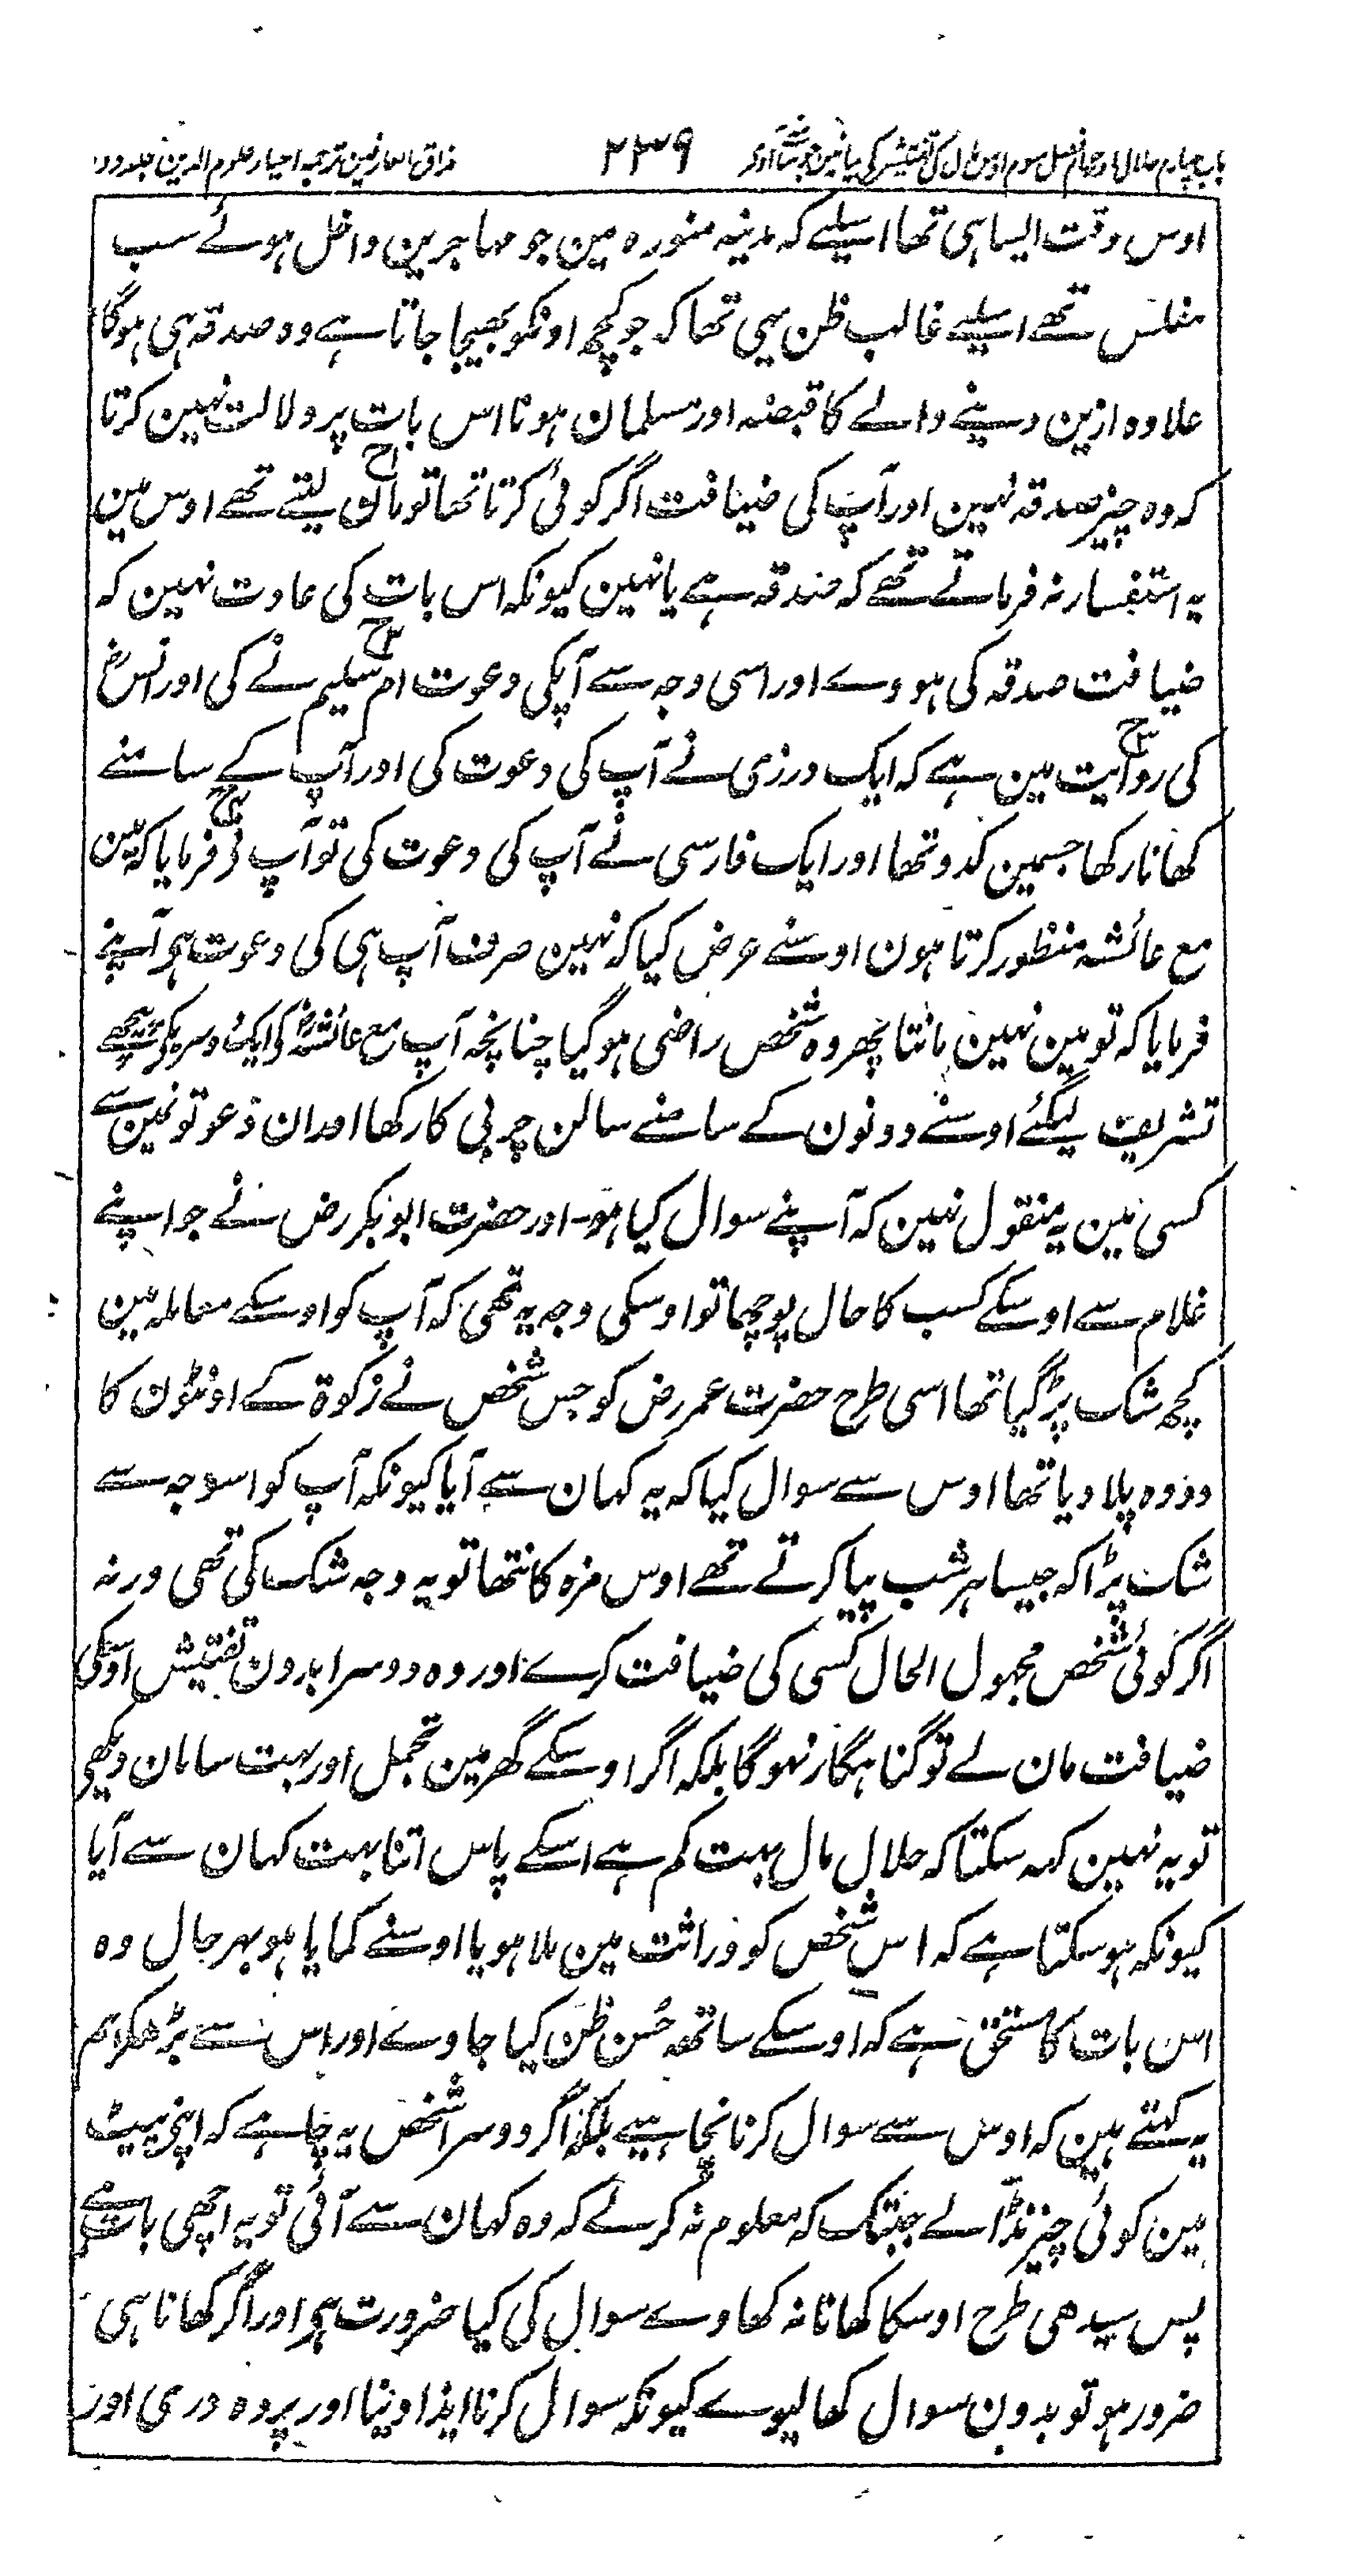 باب چہارم حلال اور حرام فصل سوم اوس مال کی تفتیش کے بیان مین جو ۲۳۹ مذاق العارفین ترجمہ احیاء علوم الدین جلد دوم
اوس وقت ایسا ہی تھا اسیلیے کہ مدینہ منورہ مین جو مہاجرین داخل ہوئے سب
مفلس تھے اسیلیے غالب ظن یہی تھا کہ جو کچھ اونکو بھیجا جاتا ہے وہ صدقہ ہی ہوگا
علاوہ ازین دینے والے کا قبضہ اور مسلمان ہونا اس بات پر دلالت نہین کرتا
کہ وہ چیز صدقہ نہین اور آپ کی ضیافت اگر کوئی کرتا تھا تو مان لیتے تھے اوس مین
یہ استفسار نہ فرماتے تھے کہ صدقہ ہے یا نہین کیونکہ اس بات کی عادت نہین کہ
ضیافت صدقہ کی ہووے اور اسی وجہ سے آپکی دعوت ام سلیم نے کی اور انس رض
کی روایت مین ہے کہ ایک درزی نے آپ کی دعوت کی اور آپ کے سامنے
کھانا رکھا جسمین کدو تھا اور ایک فارسی نے آپ کی دعوت کی تو آپ نے فرمایا کہ مین
مع عائشہ منظور کرتا ہون اوسنے عرض کیا کہ نہین صرف آپ ہی کی دعوت ہی آپنے
فرمایا کہ تو مین نہین مانتا پھر وہ شخص راضی ہوگیا چنانچہ آپ مع عائشہ رض کے ایک دوسرے کے پیچھے
تشریف لیگئے اوسنے دونون کے سامنے سالن چربی کا رکھا اور ان دعوتونمین سے
کسی مین یہ منقول نہین کہ آپنے سوال کیا ہو۔ اور حضرت ابوبکر رض نے جو اپنے
غلام سے اوسکے کسب کا حال پوچھا تو اوسکی وجہ یہ تھی کہ آپ کو اوسکے معاملہ مین
کچھ شک پڑگیا تھا اسی طرح حضرت عمر رض کو جس شخص نے زکوۃ کے اونٹون کا
دودہ پلا دیا تھا اوس سے سوال کیا کہ یہ کہان سے آیا کیونکہ آپ کو اسوجہ سے
شک پڑا کہ جیسا ہر شب پیا کرتے تھے اوس مزہ کا نتھا تو یہ وجہ شک کی تھی ورنہ
اگر کوئی شخص مجہول الحال کسی کی ضیافت کرے اور وہ دوسرا بدون تفتیش اوسکی
ضیافت مان لے تو گناہگار نہوگا بلکہ اگر اوسکے گھر مین تجمل اور بہت سامان دیکھے
تو یہ نہین کہہ سکتا کہ حلال مال بہت کم ہے اسکے پاس اتنا بہت کہان سے آیا
کیونکہ ہو سکتا ہے کہ اس شخص کو وراثت مین ملا ہو یا اوسنے کمایا ہو بہرحال وہ
اس بات کا مستحق ہے کہ اوسکے ساتھہ حُسن ظن کیا جاوے اور اس سے بڑھکر ہم
یہ کہتے ہین کہ اوس سے سوال کرنا نچاہیے بلکہ اگر دوسرا شخص یہ چاہے کہ اپنے پیٹ
مین کوئی چیز نڈالے جبتک کہ معلوم نہ کرلے کہ وہ کہان سے آئی تو یہ اچھی بات ہے
پس سیدھی طرح اوسکا کھانا نہ کھاوے سوال کی کیا ضرورت ہی اور اگر کھانا ہی
ضرور ہو تو بدون سوال کھا لیوے کیونکہ سوال کرنا ایذا دینا اور پردہ دری اور